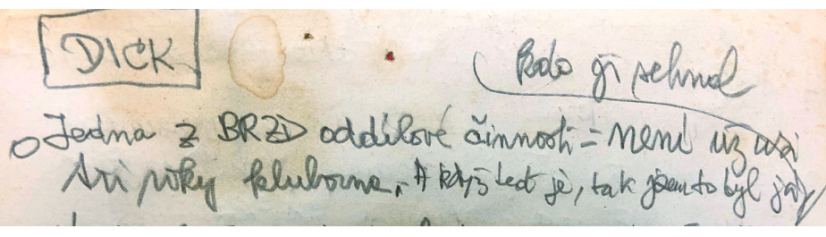 DICK
Kdo ji sehnal
Jedna z BRZD oddílové činnosti = není už asi
tři roky klubovna, A když teď je, tak jsem to byl já,